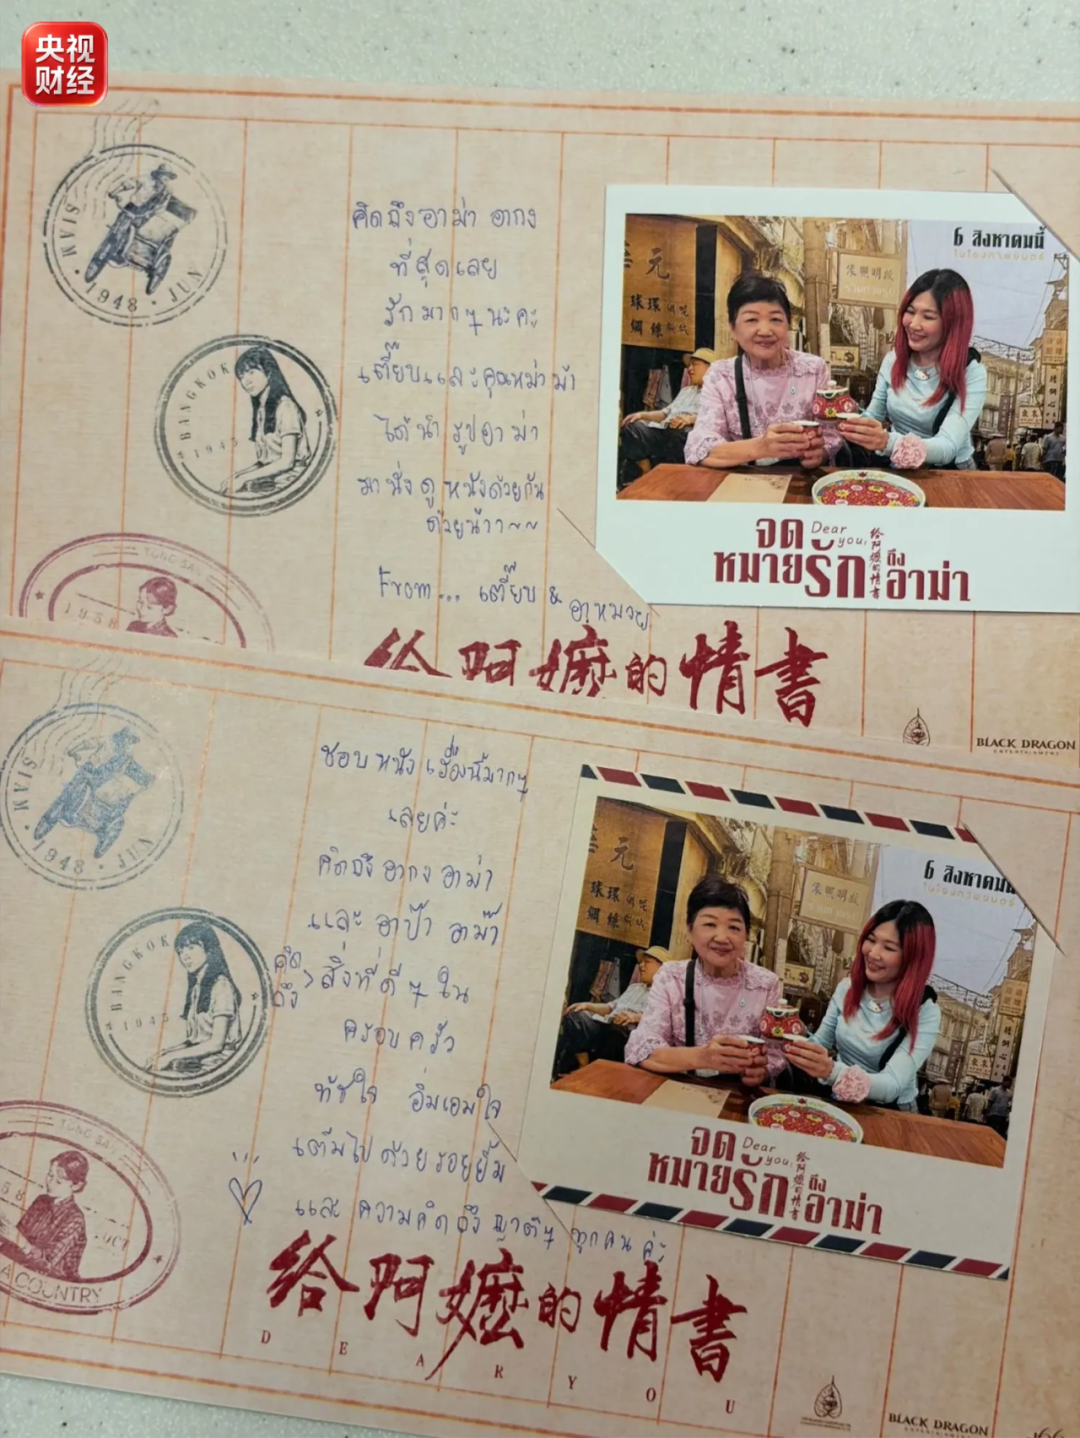 央视
财经
SIAM
1948 · JUN
BANGKOK
1945
TONG SAN
1958
คิดถึงอาม่า อากง
ที่สุดเลย
รักมากๆนะคะ
เตี๊ยบและคุณหม่าม้า
ได้นำรูปอาม่า
มานั่งดูหนังด้วยกัน
ด้วยน้าา~~
From... เตี๊ยบ & อาหมวย
元
珠環
綢緞
6 สิงหาคมนี้
ในโรงภาพยนตร์
จดหมายรักถึงอาม่า
Dear you,
给阿嬷的情書
给阿嬷的情書
BLACK DRAGON
ENTERTAINMENT
SIAM
1948 · JUN
BANGKOK
1945
TONG SAN
58
OCT
A COUNTRY
ชอบหนังเรื่องนี้มากๆ
เลยค่ะ
คิดถึงอากง อาม่า
และ อาป๊า อาม๊า
คิดถึง > สิ่งที่ดีๆ ใน
ครอบครัว
หัวใจ อิ่มเอมใจ
เต็มไปด้วยรอยยิ้ม
และ ความคิดถึง ญาติๆ ทุกคน ค่ะ
元
珠環
綢緞
6 สิงหาคมนี้
ในโรงภาพยนตร์
จดหมายรักถึงอาม่า
Dear you,
给阿嬷的情書
给阿嬷的情書
DEAR YOU
BLACK DRAGON
ENTERTAINMENT